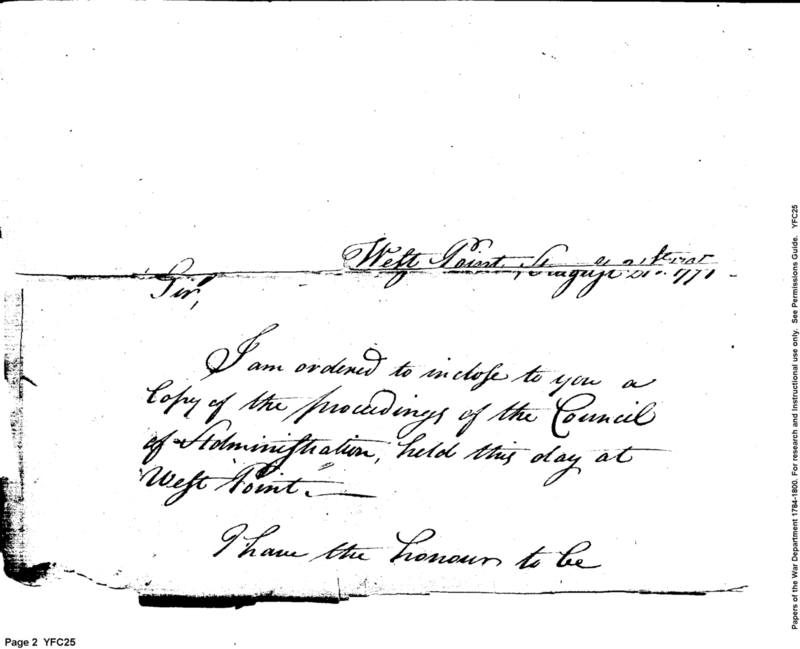 West Point, August 21st
Sir,
I am ordered to inclose to you a
Copy of the proceedings of the Council
of Administration, held this day at
West Point.
I have the honour to be
Page 2 YFC25
Papers of the War Department 1784-1800. For research and instructional use only. See Permissions Guide. YFC25